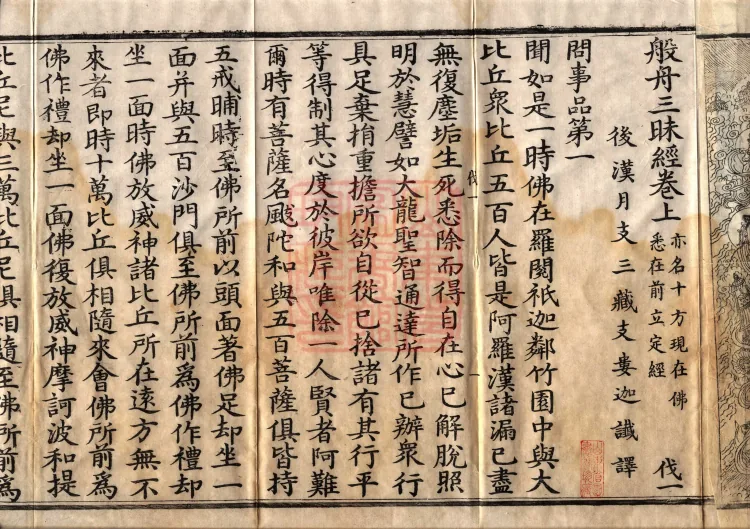 般舟三昧經卷上 亦名十方現在佛 悉在前立定經 伐一
後漢月支三藏支婁迦讖譯
問事品第一
聞如是一時佛在羅閱祇迦鄰竹園中與大
比丘衆比丘五百人皆是阿羅漢諸漏已盡
無復塵垢生死悉除而得自在心已解脫照
明於慧譬如大龍聖智通達所作已辦衆行
具足棄捐重擔所欲自從已捨諸有其行平
等得制其心度於彼岸唯除一人賢者阿難
爾時有菩薩名颰陀和與五百菩薩俱皆持
五戒晡時至佛所前以頭面著佛足却坐一
面并與五百沙門俱至佛所前爲佛作禮却
坐一面時佛放威神諸比丘所在遠方無不
來者即時十萬比丘俱相隨來會佛所前爲
佛作禮却坐一面佛復放威神摩訶波和提
比丘尼與三萬比丘尼俱相隨至佛所前爲